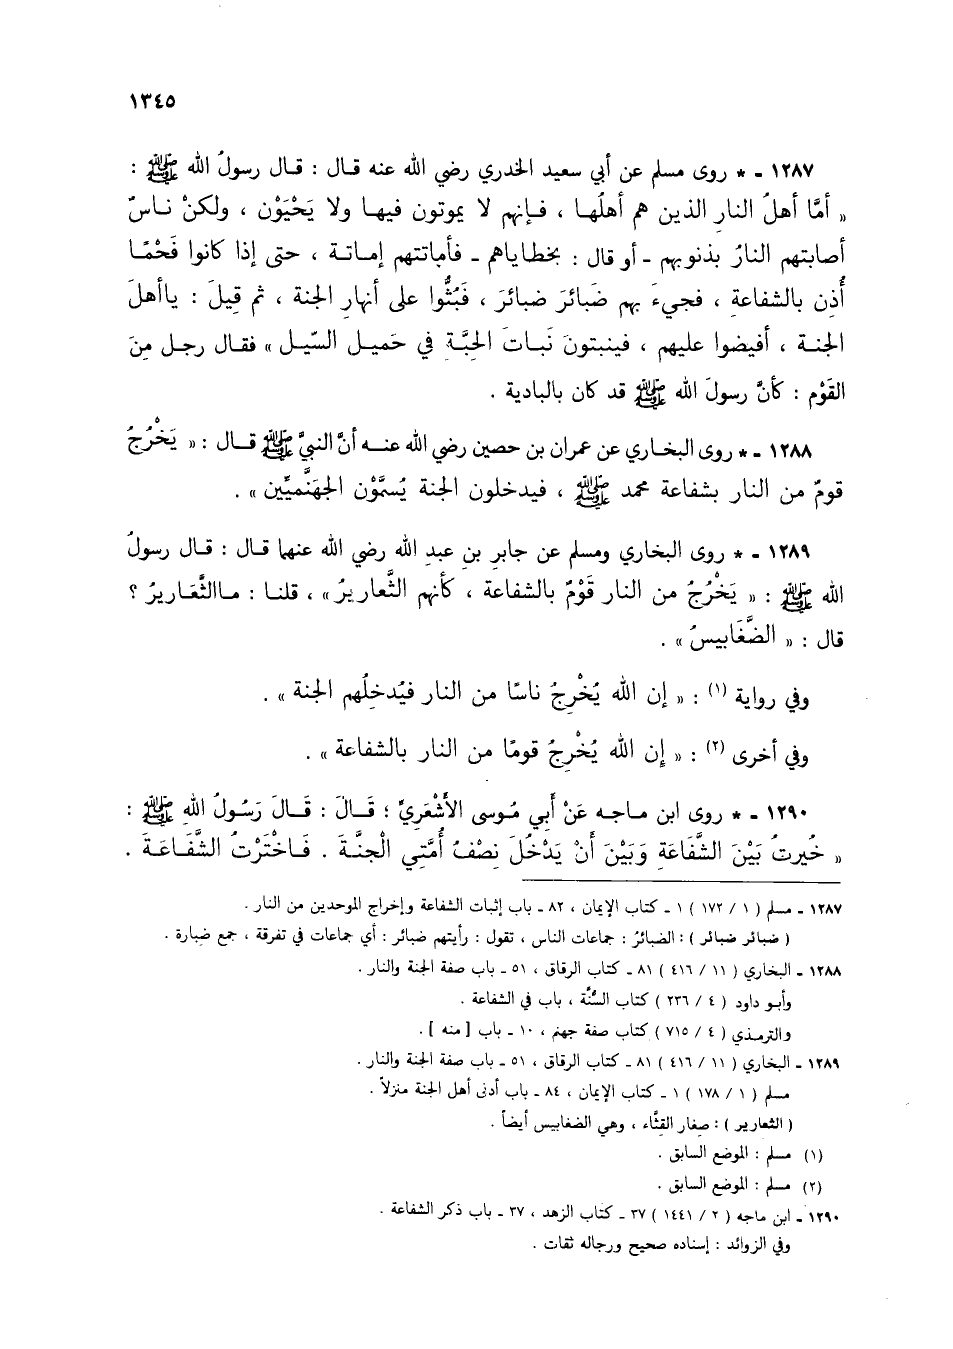 ١٣٤٥
١٢٨٧ - * روى مسلم عن أبي سعيد الخدري رضي الله عنه قال : قال رسولُ الله ﷺ :
« أمَّا أهلُ النار الذين هم أهلُها ، فإنهم لا يموتون فيها ولا يَحْيَوْن ، ولكنْ ناسٌ
أصابتهم النارُ بذنوبهم - أو قال : بخطاياهم - فأماتتهم إماتة ، حتى إذا كانوا فَحْمًا
أُذِن بالشفاعةِ ، فجيءَ بهم ضَبائرَ ضبائرَ ، فَبُثُّوا على أنهارِ الجنة ، ثم قيلَ : ياأهلَ
الجنة ، أفيضوا عليهم ، فينبتونَ نَباتَ الحِبَّةِ في حَميل السَّيل » فقال رجل مِنَ
القَوْم : كأنَّ رسولَ الله ﷺ قد كان بالبادية .
١٢٨٨ - * روى البخاري عن عمران بن حصين رضي الله عنه أنَّ النبيَّ ﷺ قال : « يَخْرُجُ
قومٌ من النار بشفاعة محمد ﷺ ، فيدخلون الجنة يُسمَّوْن الجهَنَّميِّين » .
١٢٨٩ - * روى البخاري ومسلم عن جابرِ بنِ عبدِ الله رضي الله عنهما قال : قال رسولُ
الله ﷺ : « يَخْرُجُ من النار قَوْمٌ بالشفاعة ، كأنهم الثَّعاريرُ » ، قلنا : ماالثَّعَاريرُ ؟
قال : « الضَّغَابيسُ » .
وفي رواية (١) : « إن الله يُخْرِجُ ناسًا من النار فيُدخلُهم الجنة » .
وفي أخرى (٢) : « إن الله يُخْرِجُ قومًا من النار بالشفاعة » .
١٢٩٠ - * روى ابن ماجه عَنْ أَبِي مُوسى الأَشْعَرِيِّ ؛ قَالَ : قَالَ رَسُولُ اللهِ ﷺ :
« خُيرتُ بَيْنَ الشَّفَاعَةِ وَبَيْنَ أَنْ يَدْخُلَ نِصْفُ أُمَّتِي الْجنَّةَ . فَاخْتَرْتُ الشَّفَاعَةَ .
١٢٨٧ - مسلم ( ١ / ١٧٢ ) ١ - كتاب الإيمان ، ٨٢ - باب إثبات الشفاعة وإخراج الموحدين من النار .
( ضبائر ضبائر ) : الضبائرُ : جماعات الناس ، تقول : رأيتهم ضبائر : أي جماعات في تفرقة ، جمع ضبارة .
١٢٨٨ - البخاري ( ١١ / ٤١٦ ) ٨١ - كتاب الرقاق ، ٥١ - باب صفة الجنة والنار .
وأبو داود ( ٤ / ٢٣٦ ) كتاب السُّنَّة ، باب في الشفاعة .
والترمذي ( ٤ / ٧١٥ ) كتاب صفة جهنم ، ١٠ - باب [ منه ] .
١٢٨٩ - البخاري ( ١١ / ٤١٦ ) ٨١ - كتاب الرقاق ، ٥١ - باب صفة الجنة والنار .
مسلم ( ١ / ١٧٨ ) ١ - كتاب الإيمان ، ٨٤ - باب أدنى أهل الجنة منزلاً .
( الثعارير ) : صغار القِثَّاء ، وهي الضغابيس أيضاً .
(١) مسلم : الموضع السابق .
(٢) مسلم : الموضع السابق .
١٢٩٠ - ابن ماجه ( ٢ / ١٤٤١ ) ٣٧ - كتاب الزهد ، ٣٧ - باب ذكر الشفاعة .
وفي الزوائد : إسناده صحيح ورجاله ثقات .